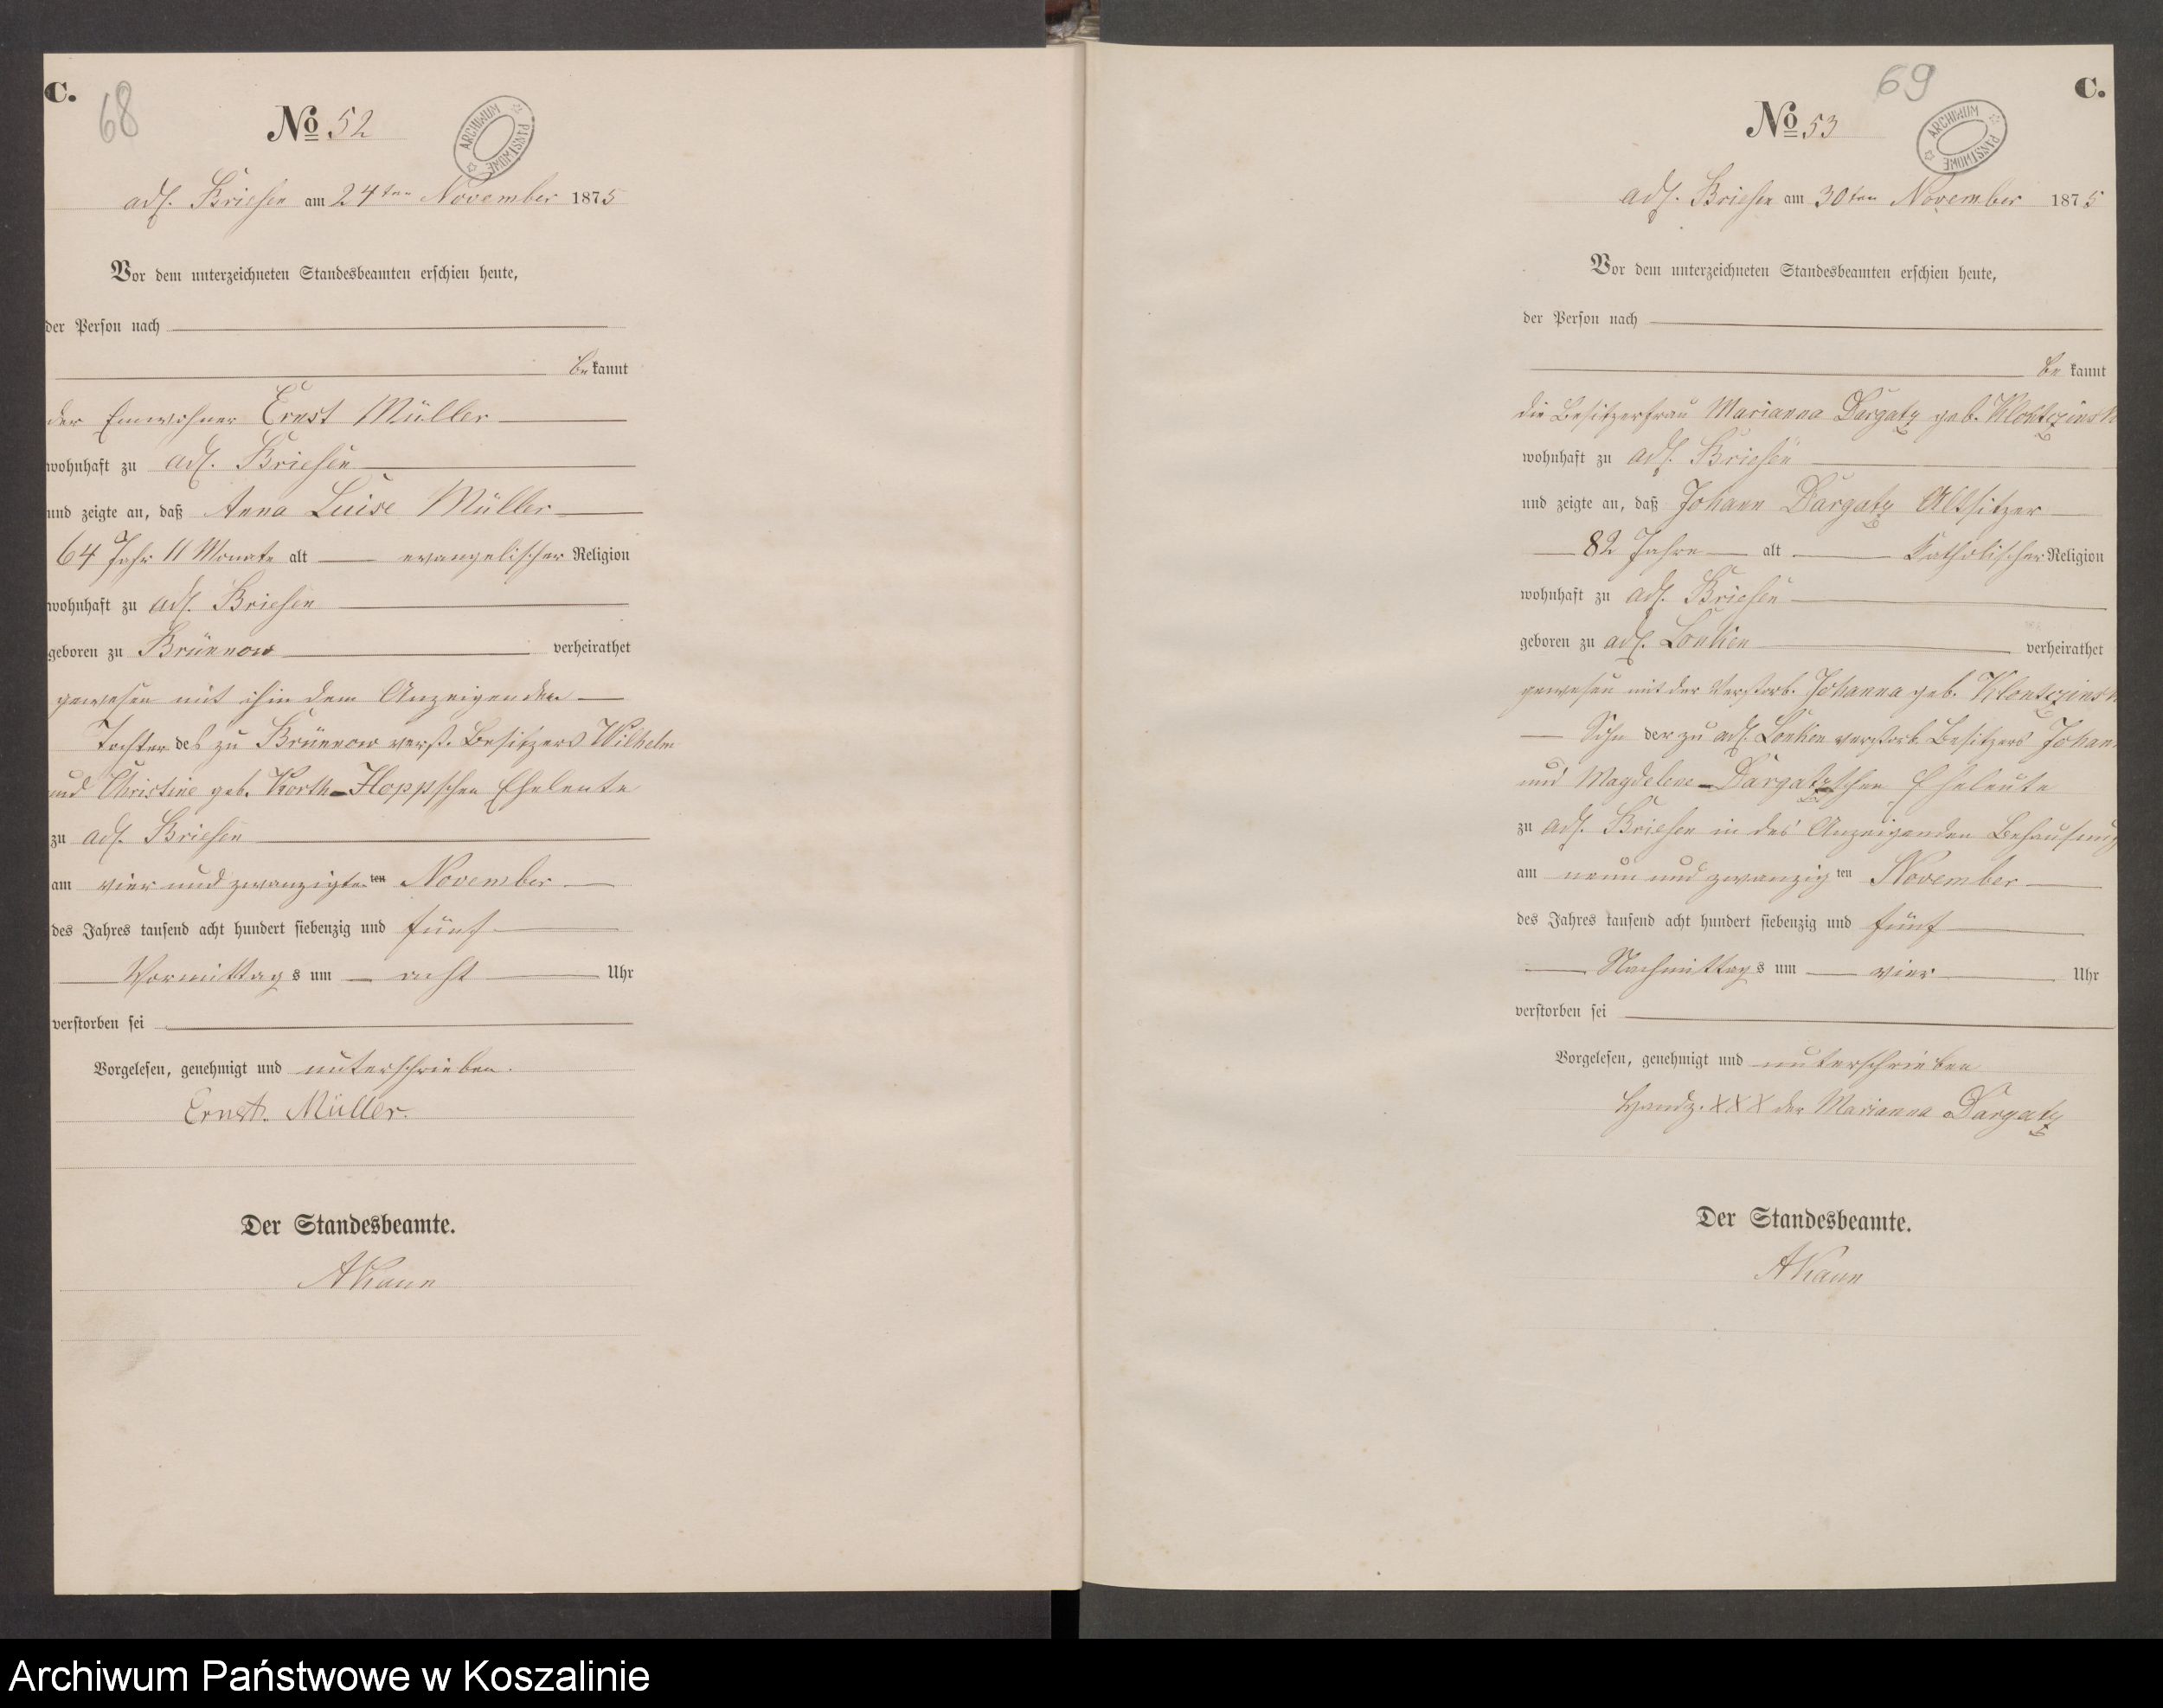 C.
68
No 52
ARCHIWUM PAŃSTWOWE
adl. Briesen am 24ten November 1875
Vor dem unterzeichneten Standesbeamten erschien heute,
der Person nach
bekannt
der Einwohner Ernst Müller
wohnhaft zu adl. Briesen
und zeigte an, daß Anna Luise Müller
64 Jahr 11 Monate alt evangelischer Religion
wohnhaft zu adl. Briesen
geboren zu Brünnow verheirathet
gewesen mit ihm dem Anzeigenden
Tochter des zu Brünnow verst. Besitzers Wilhelm
und Christine geb. Korth-Hoppschen Eheleute
zu adl. Briesen
am vier und zwanzigten ten November
des Jahres tausend acht hundert siebenzig und fünf
Vormittags um acht Uhr
verstorben sei
Vorgelesen, genehmigt und unterschrieben.
Ernst. Müller.
Der Standesbeamte.
69
C.
No 53
ARCHIWUM PAŃSTWOWE
adl. Briesen am 30ten November 1875
Vor dem unterzeichneten Standesbeamten erschien heute,
der Person nach
be kannt
die Besitzerfrau Marianna Dargatz geb.
wohnhaft zu adl. Briesen
und zeigte an, daß Johann Dargatz Altsitzer
82 Jahre alt Katholischer Religion
wohnhaft zu adl. Briesen
geboren zu adl. Lonken verheirathet
gewesen mit der verstorb. Johanna geb.
Sohn der zu adl. Lonken verstorb. Besitzers Johann
und Magdelene-Dargatzschen Eheleute
zu adl. Briesen in des Anzeigenden Behausung
am neun und zwanzig ten November
des Jahres tausend acht hundert siebenzig und fünf
Nachmittags um vier Uhr
verstorben sei
Vorgelesen, genehmigt und unterschrieben
Handz. XXX der Marianna Dargatz
Der Standesbeamte.
Archiwum Państwowe w Koszalinie